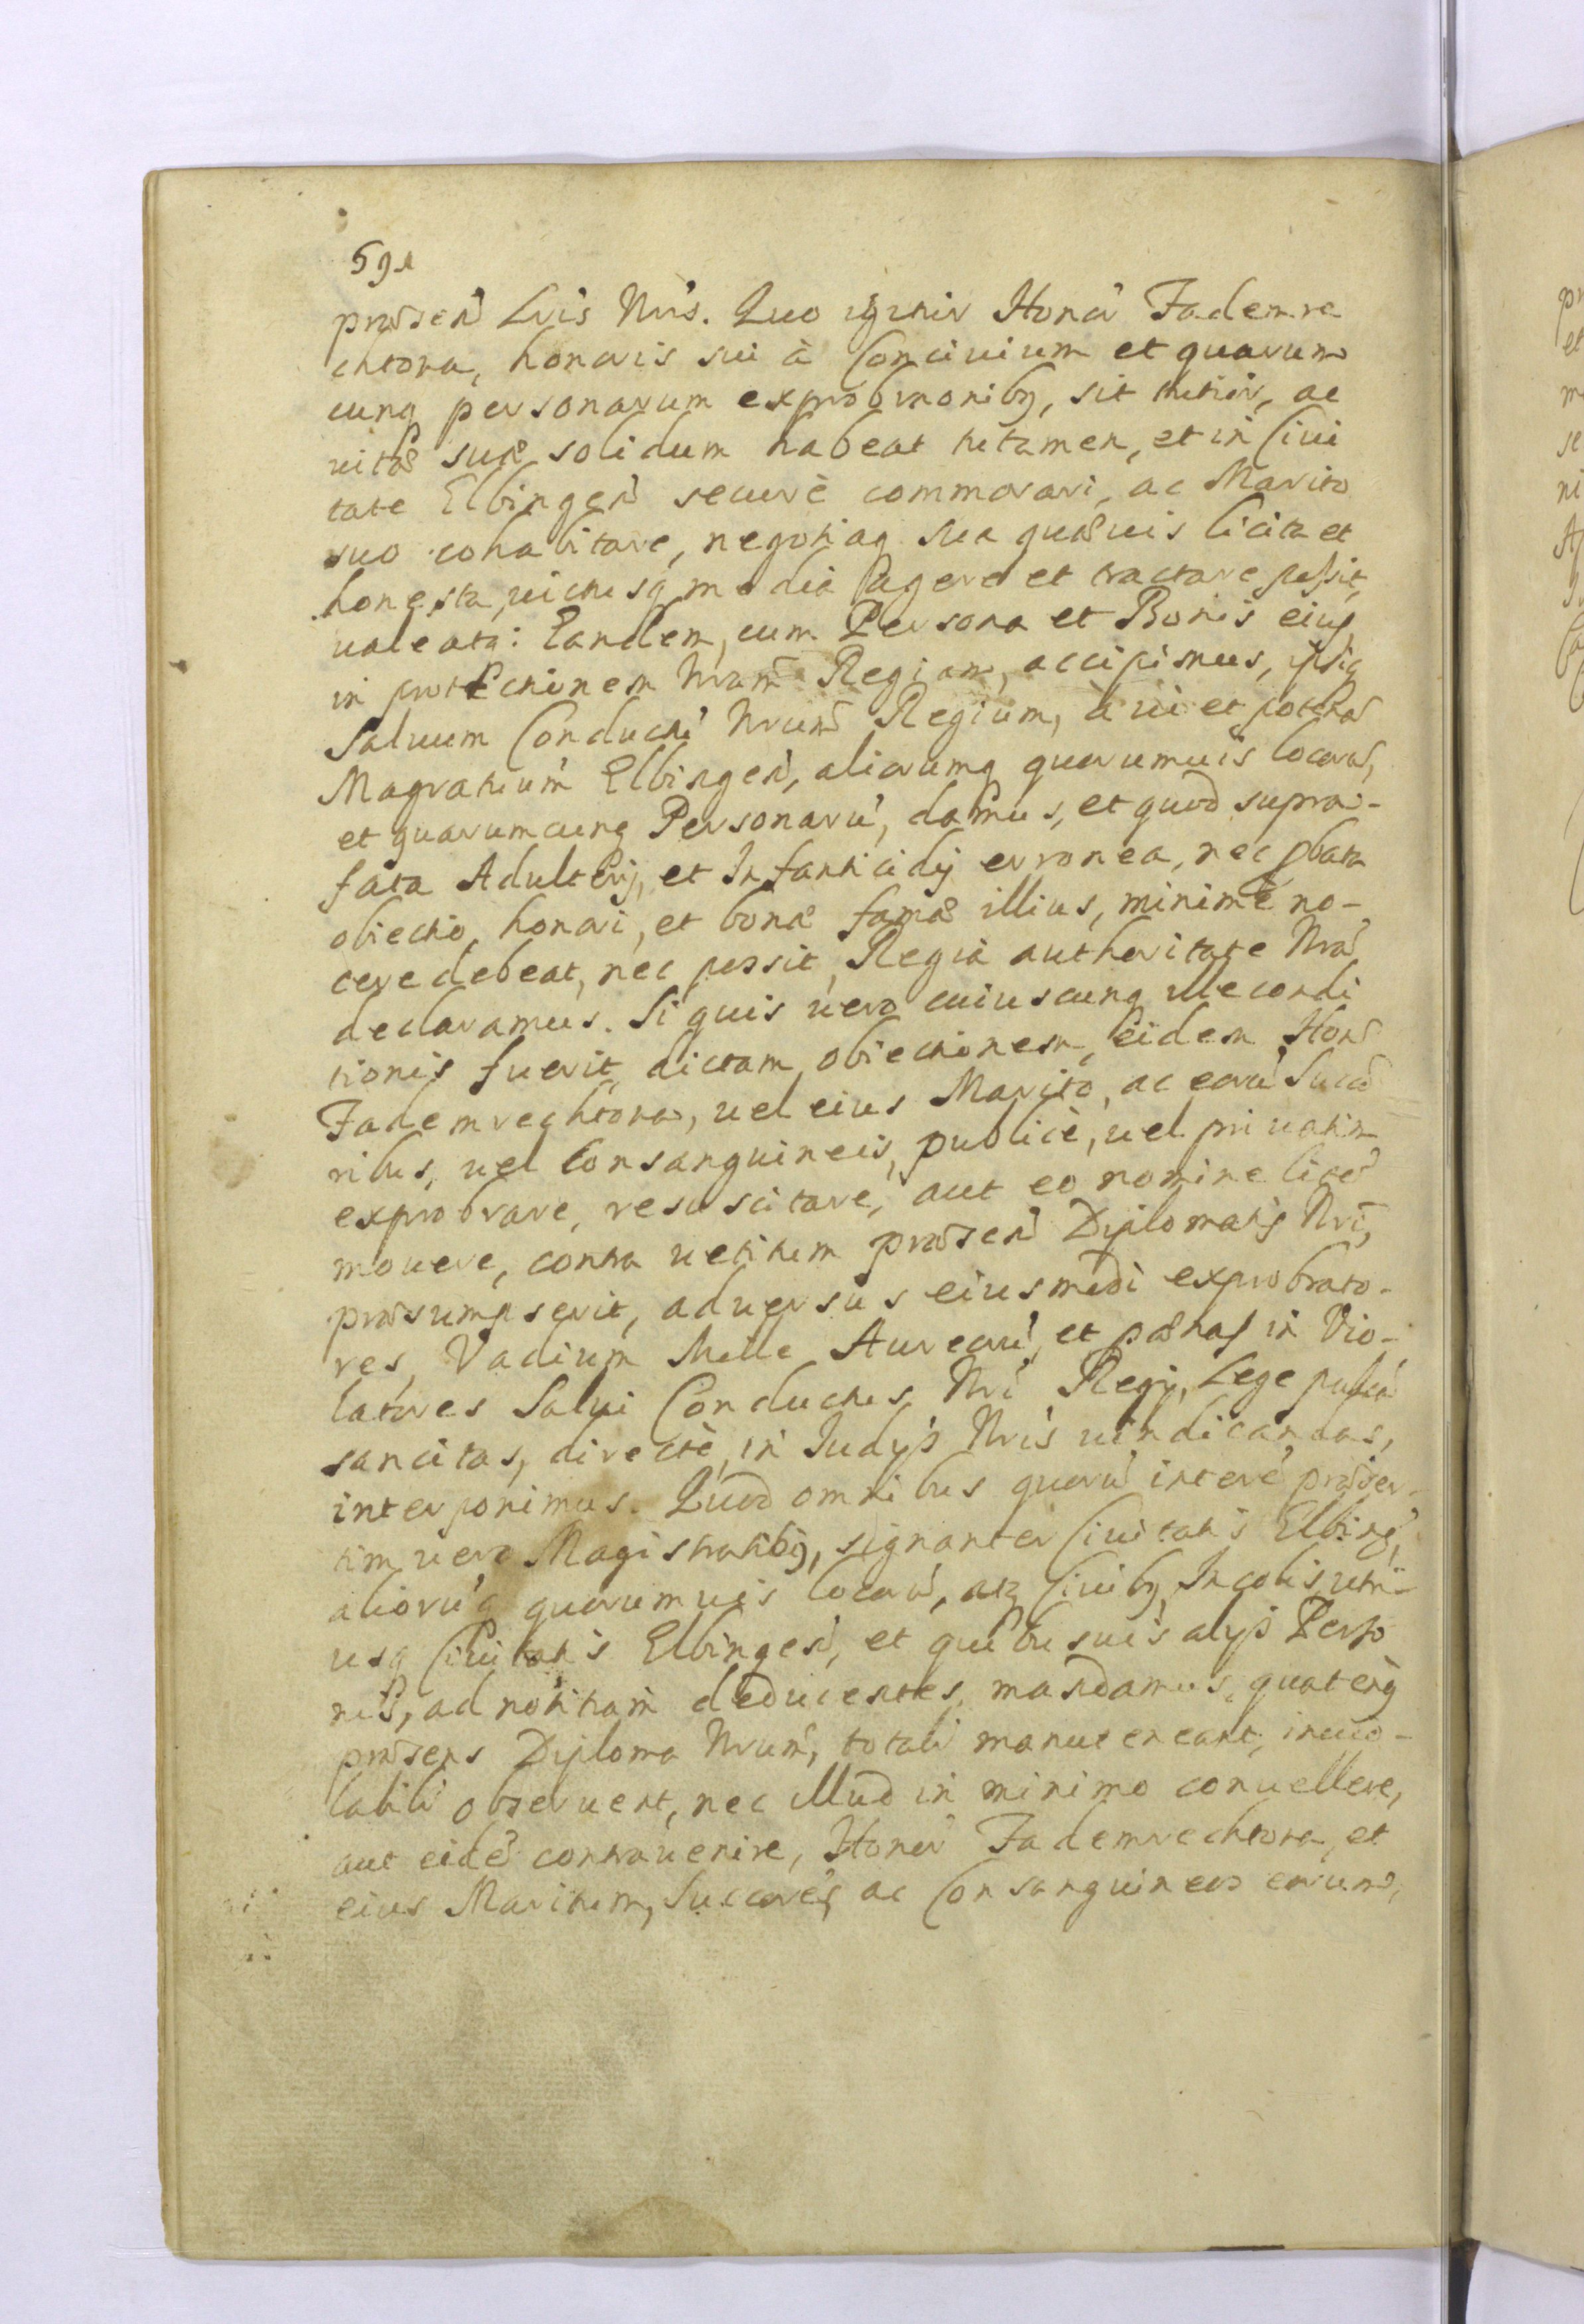 591
præsen Lris Nris. Quo igitur Honœ Fademre
chtora, honoris sui à Conciuium et quarum
cunq personarum exprobrationibq, sit tutior, ac
uitæ suæ solidum habeat tutamen, et in Ciui
tate Elbingen securè commorari, ac Marito
suo cohabitare, negotiaq sua quæuis licita et
honesta, uictusq media agere et tractare possit,
ualeatq: Eandem, cum Persona et Bonis eius,
in protectionem Nram Regiam, accipimus, ipsiq
Saluum Conductu Nrum Regium, à ui et potentia
Magratuum Elbingen, aliorumq quorumuis locorum,
et quarumcunq Personaru, damus, et quod supra-
fata Adulterij, et Infanticidij erronea, nec pbata
obiectio, honori, et bonæ famæ illius, minimè no-
cere debeat, nec possit, Regia authoritate Nra
declaramus. Si quis uero cuiuscunq ille condi
tionis fuerit, dictam obiectionem, eidem Hon
Fademrechtora, uel eius Marito, ac eoru Succo
ribus, uel Consanguineis, publicè, uel priuatim
exprobrare, resuscitare, aut eo nomine lite
mouere, contra uetitum præsen Diplomatis Nri,
præsumpserit, aduersus eiusmodi exprobrato-
res, Vadium Mille Aureoru, et pœnas in Vio-
latores Salui Conductus Nri Regij, Lege publica
sancitas, directè, in Iudijs Nris uindicandas,
interponimus. Quod omnibus quoru intere præser-
tim uero Magistratibq, signanter Ciuitatis Elbing,
aliorúq quorumuis locoru, atq Ciuibq, Incolis utri-
usq Ciuitatis Elbingen, et quibusuis alijs Perso
nis, ad notitiam deducentes, mandamus, quatenq
præsens Diploma Nrum, totali manuteneant, inuio-
labili obseruent, nec illud in minimo conuellere,
aut eidé contrauenire, Honœ Fademrechtora, et
eius Maritum, Succores, ac Consanguineos eorum,